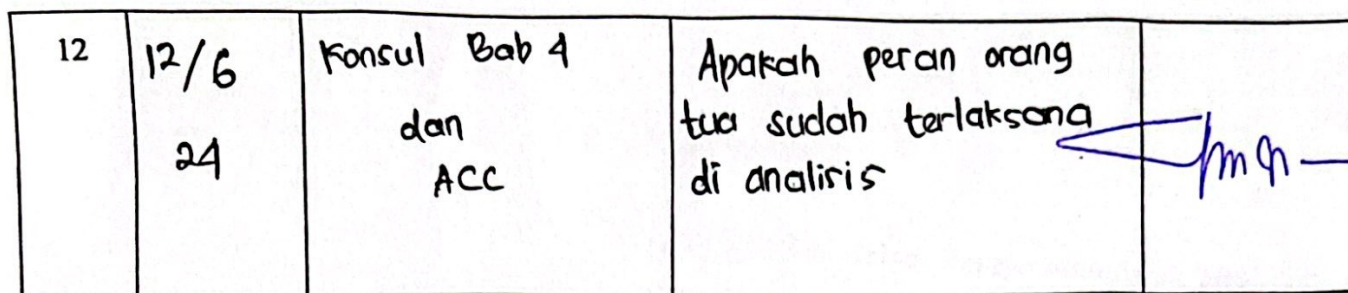 12
12/6
24
Konsul Bab 4
dan
ACC
Apakah peran orang
tua sudah terlaksana
di analisis